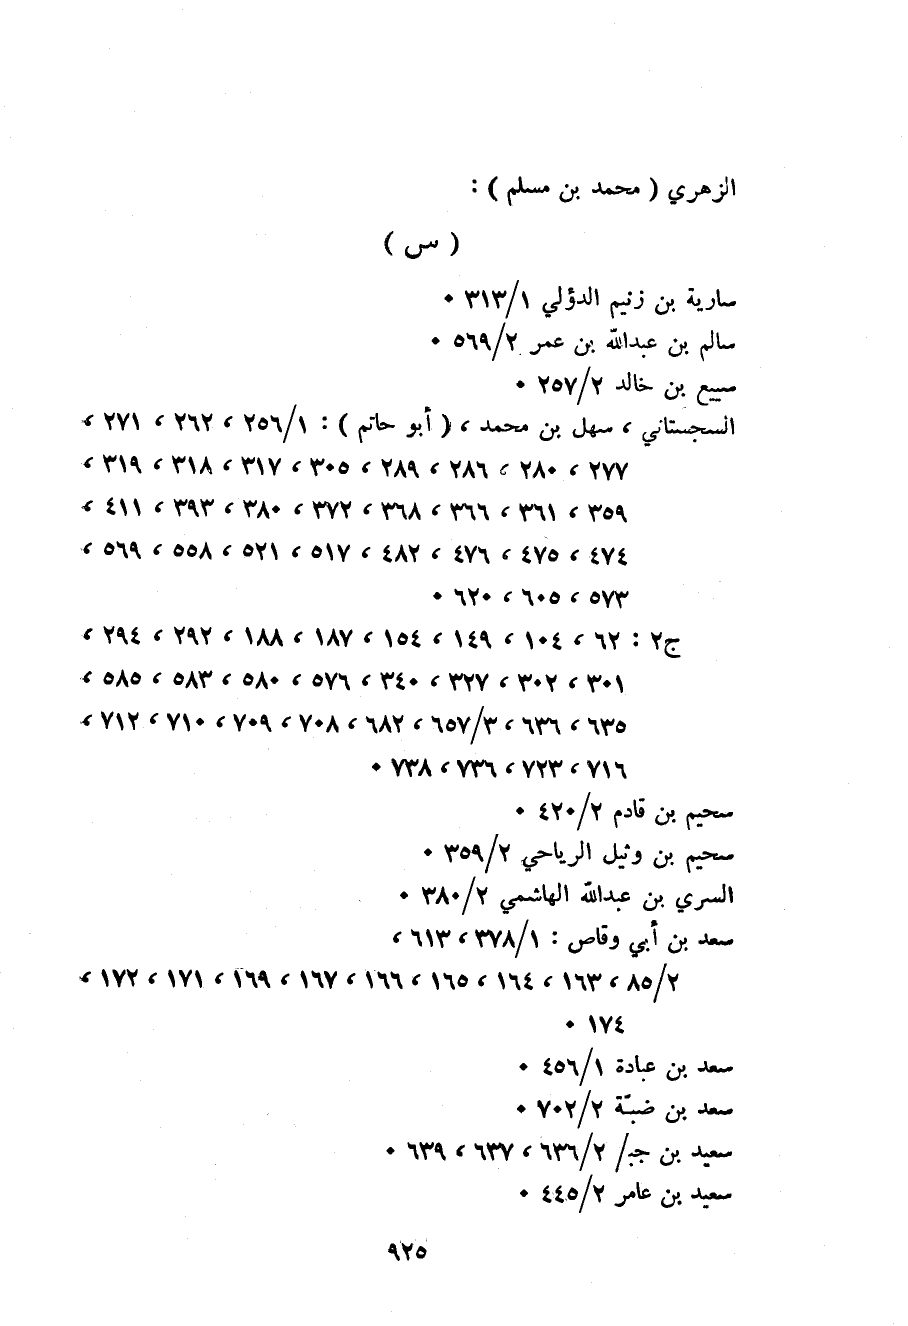 الزهري ( محمد بن مسلم ) :
( س )
سارية بن زنيم الدؤلي ٣١٣/١ ٠
سالم بن عبدالله بن عمر ٥٦٩/٢ ٠
سبيع بن خالد ٢٥٧/٢ ٠
السجستاني ، سهل بن محمد ، ( أبو حاتم ) : ٢٥٦/١ ، ٢٦٢ ، ٢٧١ ،
٢٧٧ ، ٢٨٠ ، ٢٨٦ ، ٢٨٩ ، ٣٠٥ ، ٣١٧ ، ٣١٨ ، ٣١٩ ،
٣٥٩ ، ٣٦١ ، ٣٦٦ ، ٣٦٨ ، ٣٧٢ ، ٣٨٠ ، ٣٩٣ ، ٤١١ ،
٤٧٤ ، ٤٧٥ ، ٤٧٦ ، ٤٨٢ ، ٥١٧ ، ٥٢١ ، ٥٥٨ ، ٥٦٩ ،
٥٧٣ ، ٦٠٥ ، ٦٢٠ ٠
ج٢ : ٦٢ ، ١٠٤ ، ١٤٩ ، ١٥٤ ، ١٨٧ ، ١٨٨ ، ٢٩٢ ، ٢٩٤ ،
٣٠١ ، ٣٠٢ ، ٣٢٧ ، ٣٤٠ ، ٥٧٦ ، ٥٨٠ ، ٥٨٣ ، ٥٨٥ ،
٦٣٥ ، ٦٣٦ ، ٦٥٧/٣ ، ٦٨٢ ، ٧٠٨ ، ٧٠٩ ، ٧١٠ ، ٧١٢ ،
٧١٦ ، ٧٢٣ ، ٧٣٦ ، ٧٣٨ ٠
سحيم بن قادم ٤٢٠/٢ ٠
سحيم بن وثيل الرياحي ٣٥٩/٢ ٠
السري بن عبدالله الهاشمي ٣٨٠/٢ ٠
سعد بن أبي وقاص : ٣٧٨/١ ، ٦١٣ ،
٨٥/٢ ، ١٦٣ ، ١٦٤ ، ١٦٥ ، ١٦٦ ، ١٦٧ ، ١٦٩ ، ١٧١ ، ١٧٢ ،
١٧٤ ٠
سعد بن عبادة ٤٥٦/١ ٠
سعد بن ضبّة ٧٠٢/٢ ٠
سعيد بن جبـ/ ٦٣٦/٢ ، ٦٣٧ ، ٦٣٩ ٠
سعيد بن عامر ٤٤٥/٢ ٠
٩٢٥